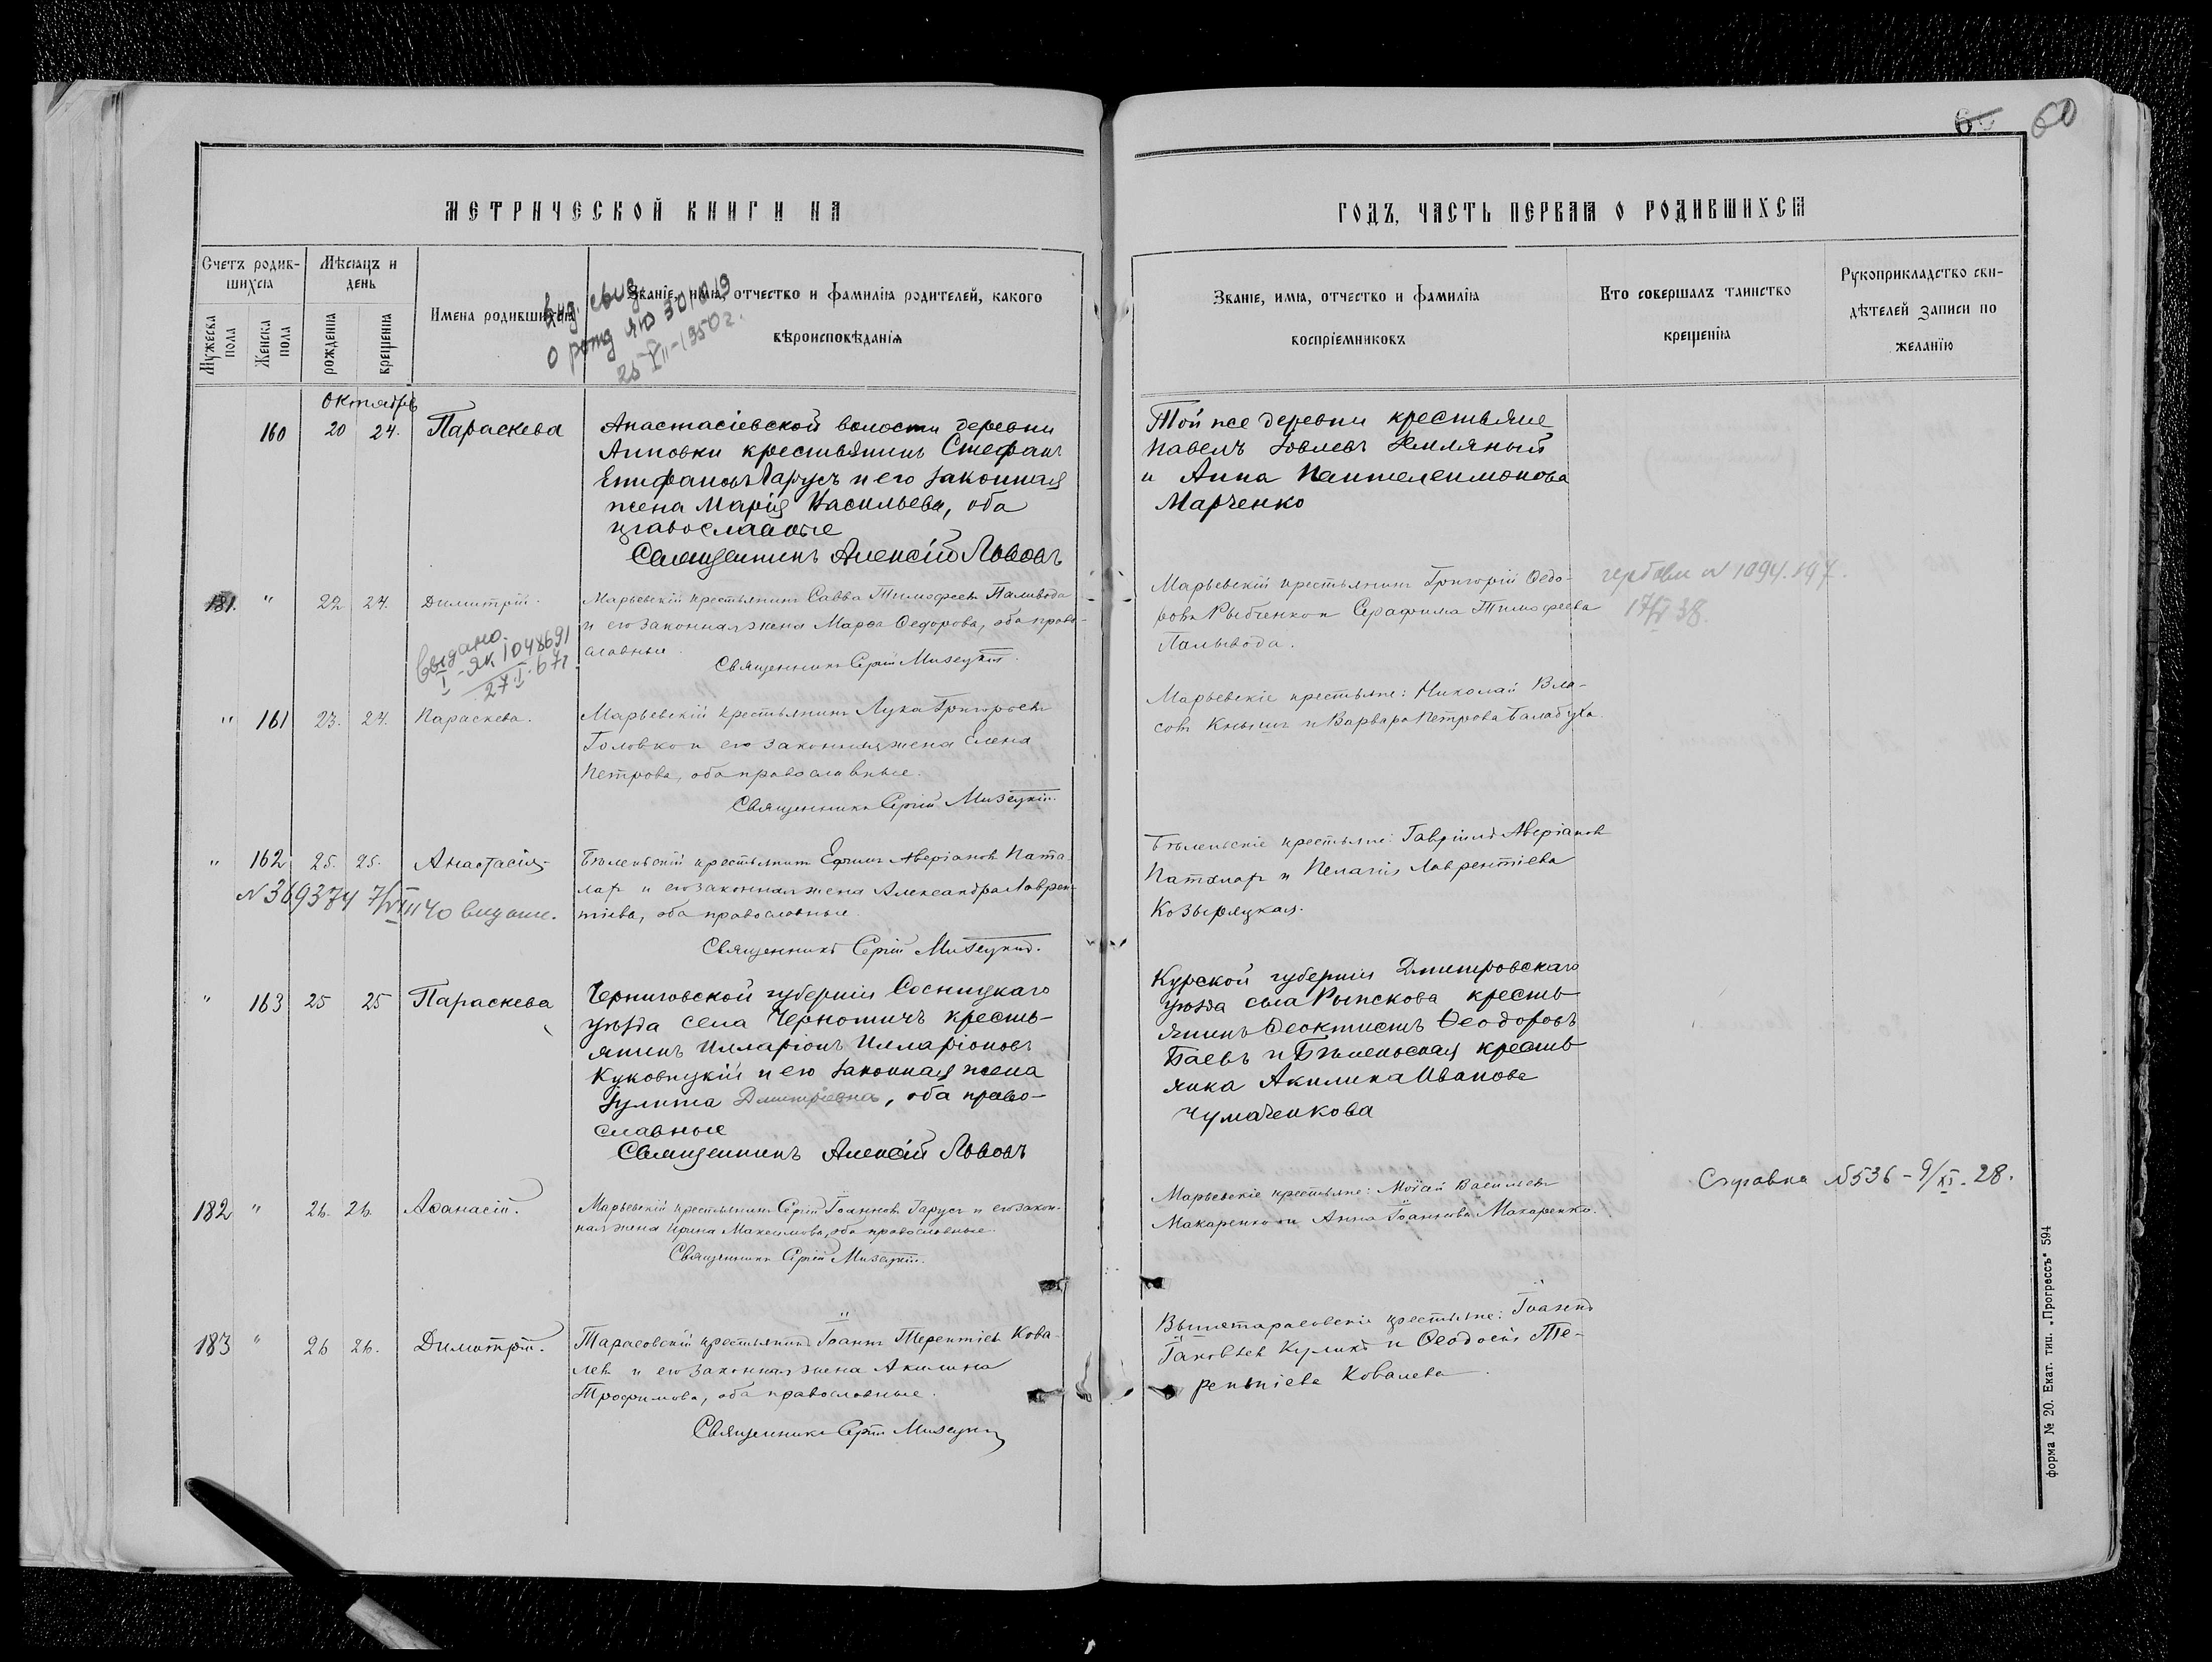 60
МЕТРИЧЕСКОЙ КНИГИ НА
ГОДЪ, ЧАСТЬ ПЕРВАЯ О РОДИВШИХСЯ
Счетъ родив-
шихся
Мужеска пола
Женска пола
Мѣсяцъ и
день
рожденія
крещенія
Имена родившихся
Званіе, имя, отчество и фамилія родителей, какого
вѣроисповѣданія
Званіе, имя, отчество и фамилія
воспріемниковъ
Кто совершалъ таинство
крещенія
Рукоприкладство сви-
дѣтелей записи по
желанію
выд. свид.
о рожд ЯЮ 301019
25-VII-1950г.
Октябрь
160 20 24. Параскева
Анастасіевской волости деревни
Анновки крестьянинъ Стефанъ
Епифановъ Гарусъ и его законная
жена Марія Васильева, оба
православные
Священникъ Алексій Львовъ
Той же деревни крестьяне
Павелъ Іовлевъ Земляный
и Анна Пантелеимонова
Марченко
181. " 22 24. Димитрій.
Марьевскій крестьянинъ Савва Тимофеевъ Паливода
и его законная жена Марѳа Ѳедорова, оба право-
славные.
Священникъ Сергій Мизецкій.
Марьевскій крестьянинъ Григорій Ѳедо-
ровъ Рыбченко и Серафима Тимофеева
Паливода.
N 1094.197.
17/VI 38.
Выдано.
I-ЯК 1048691
27.I.67г
" 161 23. 24. Параскева.
Марьевскій крестьянинъ Лука Григорьевъ
Головко и его законная жена Елена
Петрова, оба православные.
Священникъ Сергій Мизецкій.
Марьевскіе крестьяне: Николай Вла-
совъ Кнышъ и Варвара Петрова Балабуха.
" 162 25. 25. Анастасія
Бѣленьскій крестьянинъ Ефимъ Аверіановъ Пата-
ларъ и его законная жена Александра Лаврен-
тіева, оба православные.
Священникъ Сергій Мизецкій.
Бѣленьскіе крестьяне: Гавріилъ Аверіановъ
Паталаръ и Пелагія Лаврентіева
Козырецкая.
N 369374 7/VIII 40 выдан.
" 163 25 25 Параскева
Черниговской губерніи Сосницкаго
уѣзда села Чернотичъ кресть-
янинъ Илларіонъ Илларіоновъ
Куковицкій и его законная жена
Іулита Дмитріевна, оба право-
славные
Священникъ Алексій Львовъ
Курской губерніи Дмитровскаго
уѣзда села Рыжкова кресть-
янинъ Ѳеоктистъ Ѳеодоровъ
Баевъ и Бѣленьская кресть-
янка Акилина Иванова
Чумаченкова
182 " 26. 26. Аѳанасій.
Марьевскій крестьянинъ Сергій Іоанновъ Гарусъ и его закон-
ная жена Ирина Максимова, оба православные.
Священникъ Сергій Мизецкій.
Марьевскіе крестьяне: Моѵсей Васильевъ
Макаренко и Анна Іоаннова Макаренко.
Справка N 536 - 9/XI. 28.
183 " 26 26. Димитрій.
Тарасовскій крестьянинъ Іоаннъ Терентіевъ Кова-
левъ и его законная жена Акилина
Трофимова, оба православные.
Священникъ Сергій Мизецкій
Вышетарасовскіе крестьяне: Іоаннъ
Іаковлевъ Куликъ и Ѳеодосія Те-
рентіева Ковалева.
форма № 20. Екат. тип. „Прогрессъ" 594